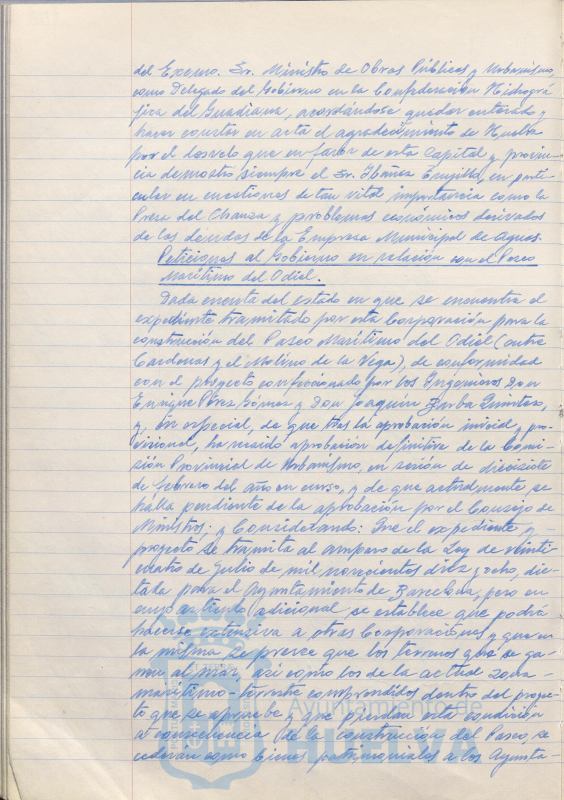 del Excmo. Sr. Ministro de Obras Públicas y Urbanismo,
como Delegado del Gobierno en la Confederación Hidrográ-
fica del Guadiana, acordándose quedar enterado y
hacer constar en acta el agradecimiento de Huelva
por el desvelo que en favor de esta Capital y provin-
cia demostró siempre el Sr. Ibáñez, en parti-
cular en cuestiones de tan vital importancia como la
Presa del Chanza y problemas económicos derivados
de las deudas de la Empresa Municipal de Aguas.
Peticiones al Gobierno en relación con el Paseo
Marítimo del Odiel.
Dada cuenta del estado en que se encuentra el
expediente tramitado por esta Corporación para la
construcción del Paseo Marítimo del Odiel (entre
Cardenas y el Molino de la Vega), de conformidad
con el proyecto confeccionado por los Ingenieros Don
Enrique Pérez Gómez y Don Joaquín Barba Quintero,
y, en especial, de que tras la aprobación inicial y pro-
visional, ha recaído aprobación definitiva de la Comi-
sión Provincial de Urbanismo, en sesión de diecisiete
de febrero del año en curso, y de que actualmente se
halla pendiente de la aprobación por el Consejo de
Ministros; y Considerando: Que el expediente y
proyecto se tramita al amparo de la Ley de veinti-
cuatro de Julio de mil novecientos diez y ocho, dic-
tada para el Ayuntamiento de Barcelona, pero en
cuyo artículo adicional se establece que podrá
hacerse extensiva a otras Corporaciones y que en
la misma se prevee que los terrenos que se ga-
nen al mar, así como los de la actual zona
marítimo-terrestre comprendidos dentro del proyec-
to que se apruebe y que pierdan esta condición
a consecuencia de la construcción del Paseo, se
cederán como bienes patrimoniales a los Ayunta-
Ayuntamiento de
HUELVA